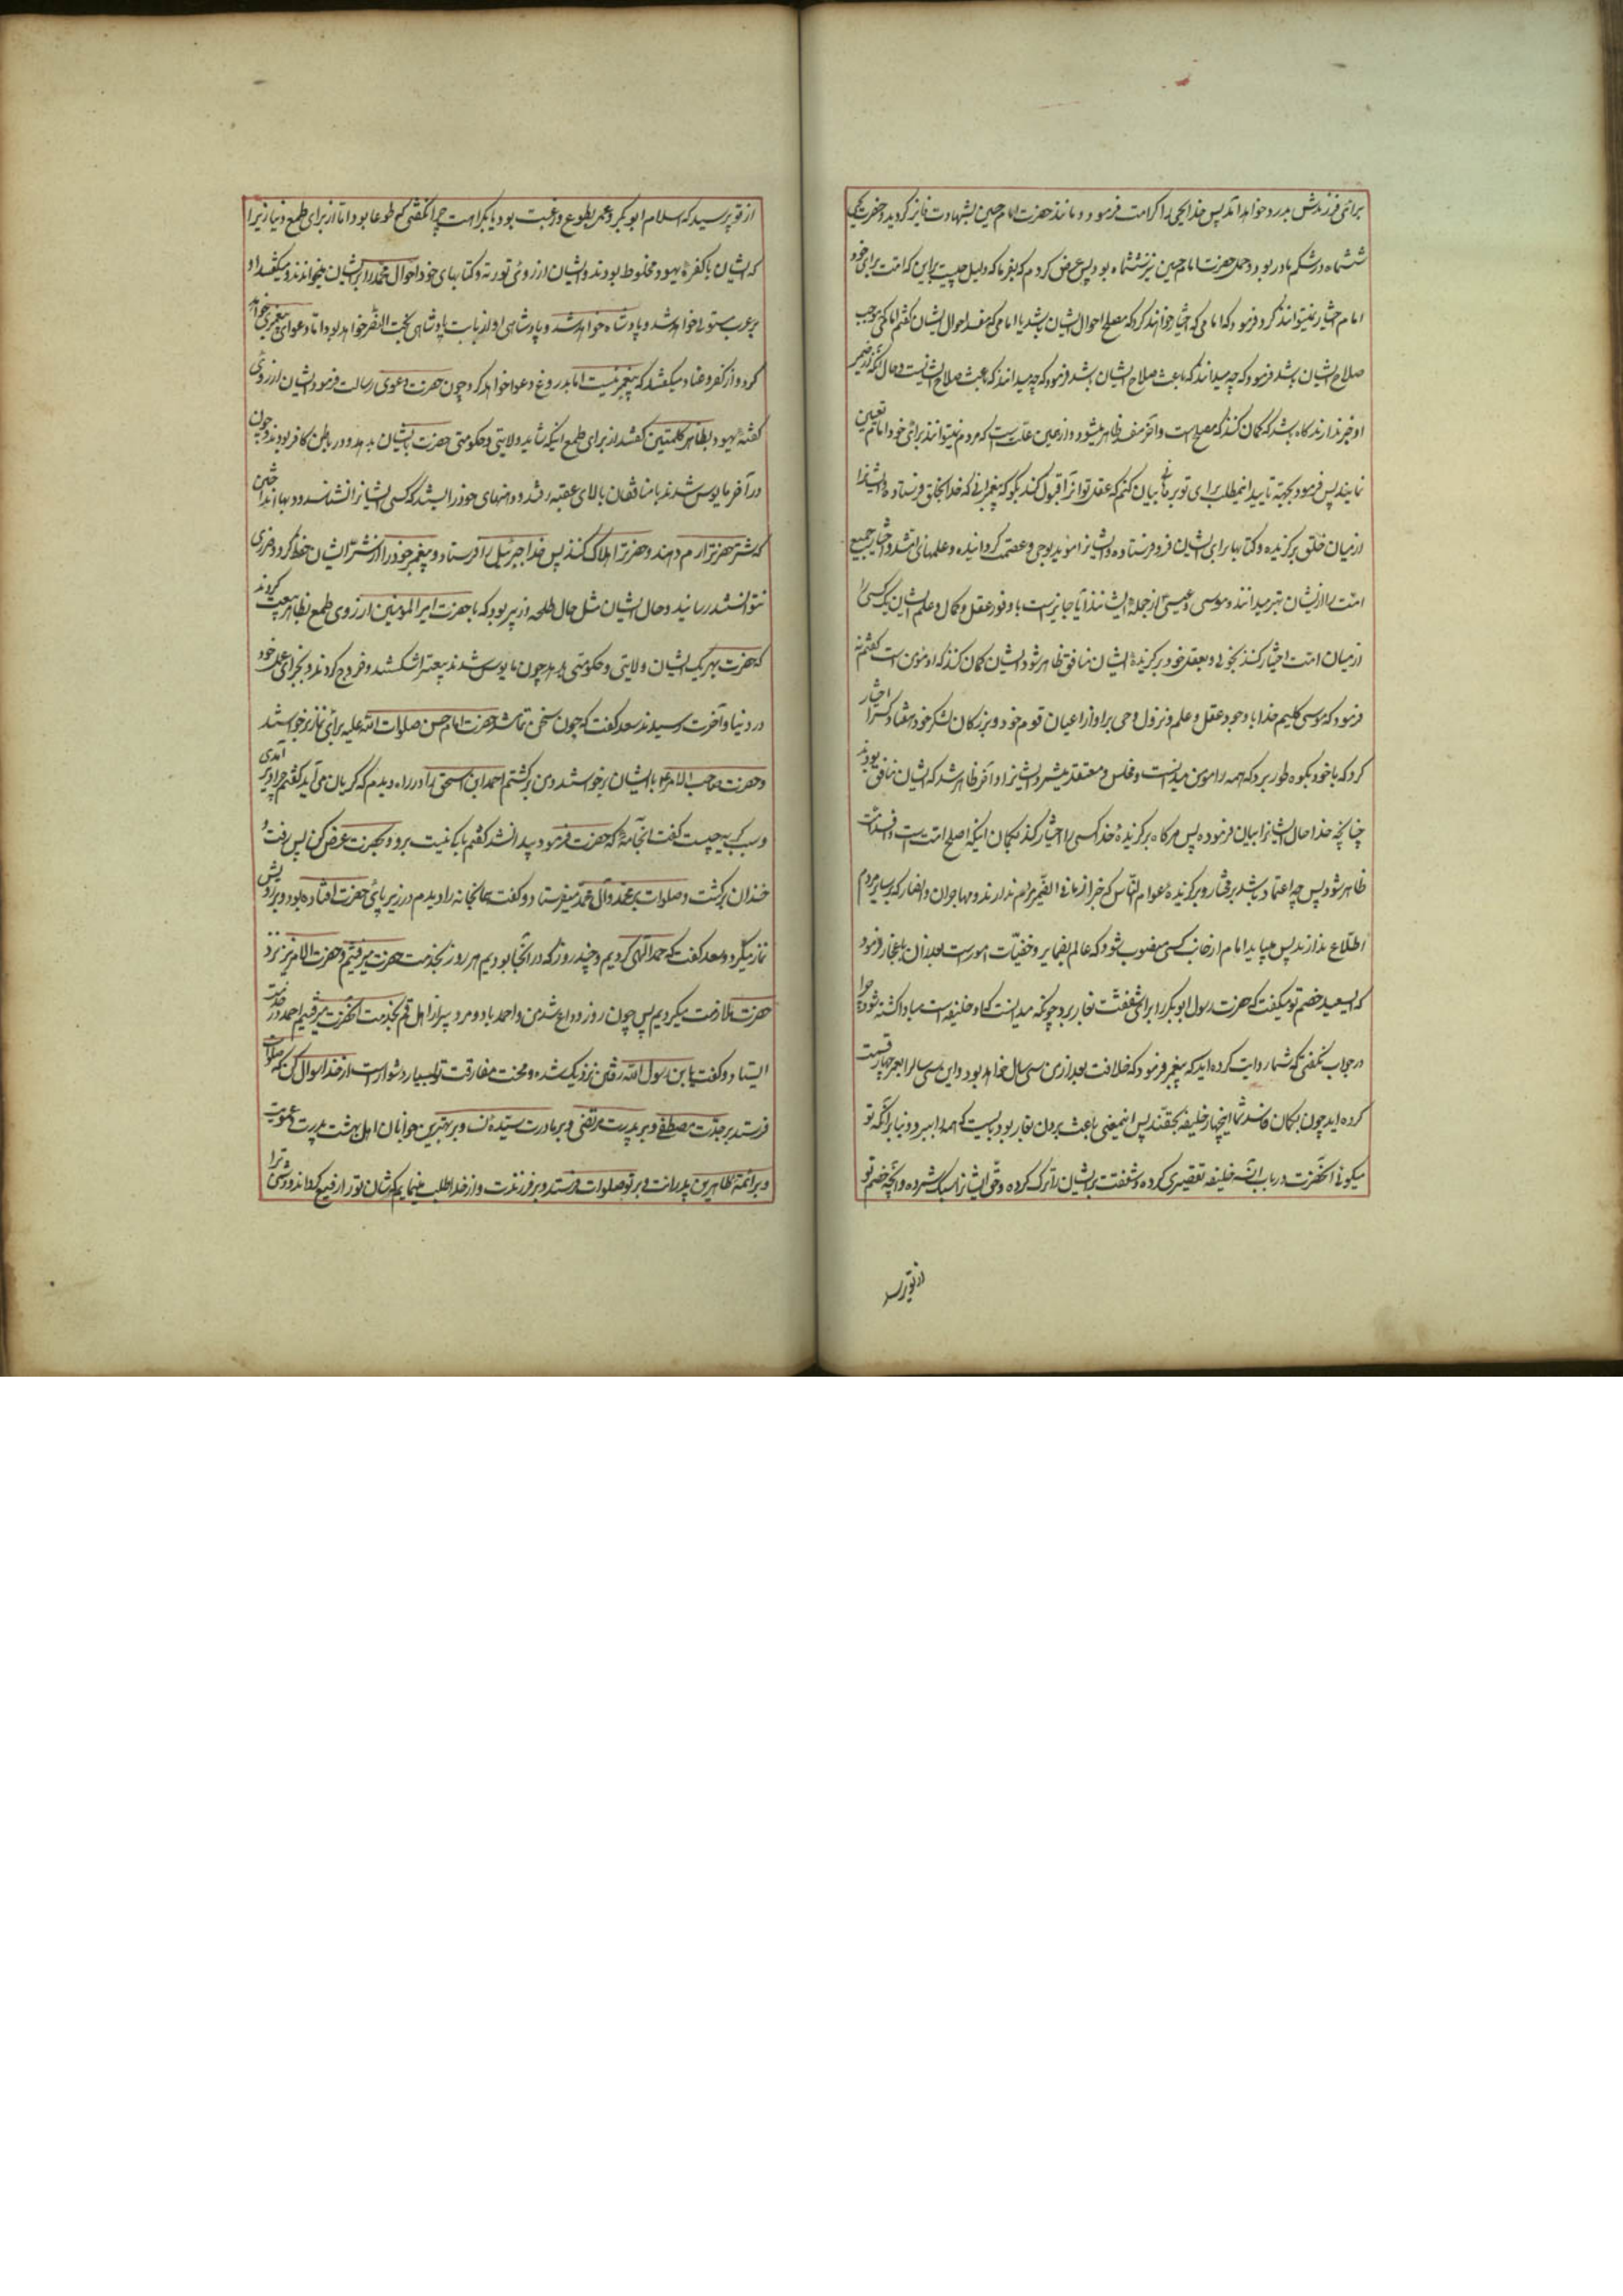 برای فرزندش بدرد خواهد آمد پس خدا یحیی را کرامت فرمود و مانند حضرت امام حسین بشهادت فایز گردید و حضرت یحیی
ششماه در شکم مادر بود و حمل حضرت امام حسین نیز ششماه بود پس عرض کردم که بفرما که دلیل چیست بر این که امت برای خود
امام اختیار نمیتوانند کرد فرمود که امامی که اختیار خواهند کرد که مصلح احوال ایشان باشد یا امامی که مفسد احوال ایشان گفتم امامی که موجب
صلاح ایشان باشد فرمود که چه میدانند که باعث صلاح ایشان باشد فرمود که چه میدانند که باعث صلاح ایشانست و حال آنکه از ضمیر
او خبر ندارند گاه باشد که گمان کنند که مصلح است و آخر مفسد ظاهر میشود و از همین علت است که مردم نمیتوانند برای خود امام تعیین
نمایند پس فرمود بجهته تایید اینمطلب برای تو برهانی بیان کنم که عقل تو آنرا قبول کند بگو که پیغمبرانی که خدا بخلق فرستاده و ایشانرا
از میان خلق برگزیده و کتابها برای ایشان فرو فرستاده و ایشانرا مؤید بوحی و عصمت گردانیده و علمهای امتند و اختیار جمیع
امت را از ایشان بهتر میدانند و موسی و عیسی از جمله ایشانند آیا جایز است با وفور عقل و کمال و علم ایشان یک کسی را
از میان امت اختیار کنند بخوبی و بعقل خود و برگزیده ایشان منافق ظاهر شود و ایشان گمان کنند که او مؤمن است گفتم نه
فرمود که موسی کلیم خدا با وجود عقل و علم و نزول وحی بر او از اعیان قوم خود و بزرگان لشکر خود هفتاد کس را اختیار
کرد که با خود بکوه طور برد که همه را مؤمن میدانست و مخلص و معتقد میشمرد ایشانرا و آخر ظاهر شد که ایشان منافق بودند
چنانچه خدا حال ایشانرا بیان فرموده پس هرگاه برگزیدهٔ خدا کسی را اختیار کند بگمان اینکه اصلح امت است و افسد امت
ظاهر شود پس چه اعتماد باشد بر مختار و برگزیدهٔ عوام الناس که خبر از ما فی الضمیر مردم ندارند و مهاجران و انصار که بسایر مردم
اطلاع ندارند پس میباید امام از جانب کسی منصوب شود که عالم بضمایر و خفیّات امور است بعد از آن باعجاز فرمود
که ای سعد خصم تو میگفت که حضرت رسول ابوبکر را برای شفقت بغار برد چونکه میدانست که او خلیفه است مبادا کشته شود چرا
در جواب نگفتی که شما روایت کرده اید که پیغمبر فرمود که خلافت بعد از من سی سال خواهد بود و این سی سال را بعمر چهار قسمت
کرده اید چون بگمان فاسد شما اینچهار خلیفه بحقند پس اینمعنی باعث بردن بغار بود بایست که همه را ببرد و بنا بر آنکه تو
میگوئی آنحضرت در باب آن سه خلیفه تقصیری کرده و شفقت بر ایشان را ترک کرده و حق ایشانرا سبک شمرده و آنچه خصم تو
از تو پرسید
از تو پرسید که اسلام ابوبکر و عمر بطوع و رغبت بود یا بکراهت چرا نگفتی که طوعا بود اما از برای طمع دنیا زیرا
که ایشان با کفرهٔ یهود مخلوط بودند و ایشان از روی توریة و کتابهای خود احوال محمد را بر ایشان میخواندند و میگفتند او
بر عرب مستولی خواهد شد و پادشاه خواهد شد و پادشاهی او از بابت پادشاهی بخت النصر خواهد بود اما دعوای پیغمبری خواهد
کرد و از کفر و عناد میگفتند که پیغمبر نیست اما بدروغ دعوا خواهد کرد چون حضرت دعوی رسالت فرمود ایشان از روی
گفتهٔ یهود بظاهر کلمتین گفتند از برای طمع اینکه شاید ولایتی و حکومتی حضرت بایشان بدهد و در باطن کافر بودند و چون
در آخر مایوس شدند با منافقان بالای عقبه رفتند و دهنهای خود را بستند که کسی ایشانرا نشناسد و دبهها انداختند
که شتر حضرت را رم دهند و حضرترا هلاک کنند پس خدا جبرئیل را فرستاد و پیغمبر خود را از شر ایشان حفظ کرد و ضرری
نتوانستند رسانید و حال ایشان مثل حال طلحه و زبیر بود که با حضرت امیر المؤمنین از روی طمع بظاهر بیعت کردند
که حضرت بهر یک ایشان ولایتی و حکومتی بدهد چون مایوس شدند بیعترا شکستند و خروج کردند و بجزای عمل خود
در دنیا و آخرت رسیدند سعد گفت که چون سخن تمام شد حضرت امام حسن صلوات الله علیه برای نماز برخواستند
و حضرت صاحب الامر ع با ایشان برخواستند و من برگشتم احمد ابن اسحق را در راه دیدم که گریان می آید گفتم چرا دیر آمدی
و سبب گریه چیست گفت آنجامهٔ که حضرت فرمود پیدا نشد گفتم باکی نیست برو و بحضرت عرض کن پس رفت و
خندان برگشت و صلوات بر محمد و آل محمد میفرستاد و گفت همان جامه را دیدم در زیر پای حضرت افتاده بود و بر رویش
نماز میکرد و سعد گفت که حمد الهی کردیم و چند روز که در آنجا بودیم هر روز بخدمت حضرت میرفتیم و حضرت الامر نیز نزد
حضرت ملازمت میکردیم پس چون روز وداع شد من و احمد با دو مرد پیر از اهل قم بخدمت آنحضرت رفتیم احمد در خدمت
ایستاد و گفت یا بن رسول الله رفتن نزدیک شده و محنت مفارقت تو بسیار دشوار است از خدا سوال میکنم که صلوات
فرستد بر جدت مصطفی و بر پدرت مرتضی و بر مادرت سیدهٔ نسا و بر بهترین جوانان اهل بهشت پدرت و عمویت
و بر ائمهٔ طاهرین پدرانت و بر تو صلوات فرستد و بر فرزندت و از خدا طلب مینمایم که شان تو را رفیع گرداند و دشمن ترا